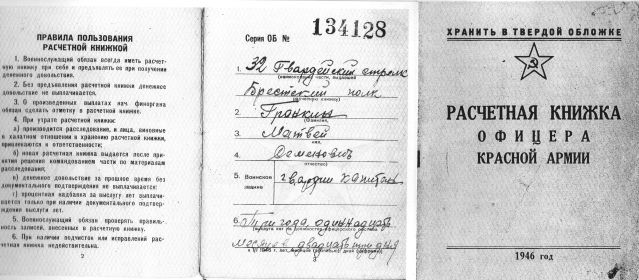 ПРАВИЛА ПОЛЬЗОВАНИЯ
РАСЧЕТНОЙ КНИЖКОЙ
1. Военнослужащий обязан всегда иметь расчет-
ную книжку при себе и предъявлять ее при получении
денежного довольствия.
2. Без предъявления расчетной книжки денежное
довольствие не выплачивается.
3. О произведенных выплатах нач. финоргана
обязан сделать отметку в расчетной книжке.
4. При утрате расчетной книжки:
а) производится расследование, и лица, виновные
в халатном отношении к хранению расчетной книжки,
привлекаются к ответственности;
б) новая расчетная книжка выдается после при-
нятия решения командованием части по материалам
расследования;
в) денежное довольствие за прошлое время без
документального подтверждения не выплачивается;
г) процентная надбавка за выслугу лет выплачи-
вается только при наличии документального подтвер-
ждения выслуги лет.
5. Военнослужащий обязан проверять правиль-
ность записей, внесенных в расчетную книжку.
6. При наличии подчисток или исправлений расчет-
ная книжка недействительна.
2
Серия ОБ № 134128
1. 32 Гвардейский стрелк
Брестский полк
2. Гронкин
3. Матвей
4. Семенович
(отчество)
5. Воинское звание гвардии капитан
6. Три года одиннадцать
месяцев двадцать три дня
3
ХРАНИТЬ В ТВЕРДОЙ ОБЛОЖКЕ
РАСЧЕТНАЯ КНИЖКА
ОФИЦЕРА
КРАСНОЙ АРМИИ
1946 год